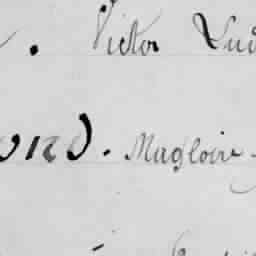 . Victor Lud
ord. Magloire